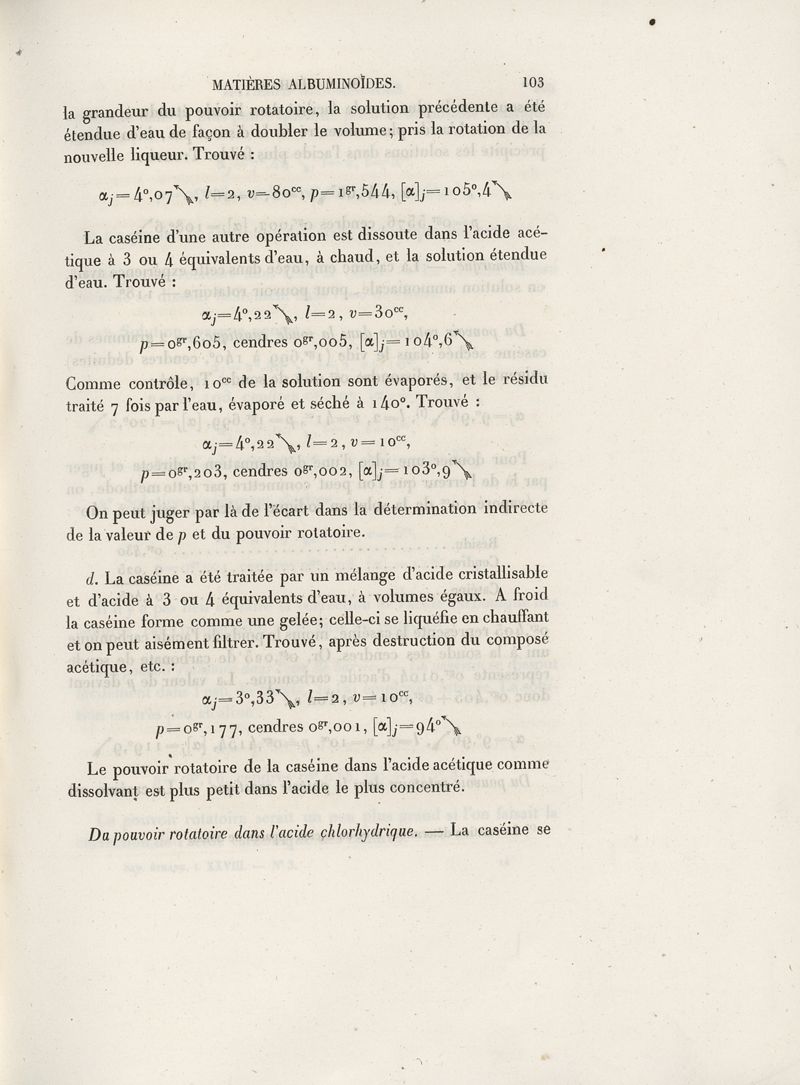 MATIÈRES ALBUMINOÏDES. 103
la grandeur du pouvoir rotatoire, la solution précédente a été
étendue d'eau de façon à doubler le volume; pris la rotation de la
nouvelle liqueur. Trouvé :
αj=4°,07↖, l=2, v=80cc, p=1gr,544, [α]j=105°,4↖
La caséine d'une autre opération est dissoute dans l'acide acé-
tique à 3 ou 4 équivalents d'eau, à chaud, et la solution étendue
d'eau. Trouvé :
αj=4°,22↖, l=2, v=30cc,
p=0gr,605, cendres 0gr,005, [α]j=104°,6↖
Comme contrôle, 10cc de la solution sont évaporés, et le résidu
traité 7 fois par l'eau, évaporé et séché à 140°. Trouvé :
αj=4°,22↖, l=2, v=10cc,
p=0gr,203, cendres 0gr,002, [α]j=103°,9↖
On peut juger par là de l'écart dans la détermination indirecte
de la valeur de p et du pouvoir rotatoire.
d. La caséine a été traitée par un mélange d'acide cristallisable
et d'acide à 3 ou 4 équivalents d'eau, à volumes égaux. A froid
la caséine forme comme une gelée; celle-ci se liquéfie en chauffant
et on peut aisément filtrer. Trouvé, après destruction du composé
acétique, etc. :
αj=3°,33↖, l=2, v=10cc,
p=0gr,177, cendres 0gr,001, [α]j=94°↖
Le pouvoir rotatoire de la caséine dans l'acide acétique comme
dissolvant est plus petit dans l'acide le plus concentré.
Du pouvoir rotatoire dans l'acide chlorhydrique. — La caséine se